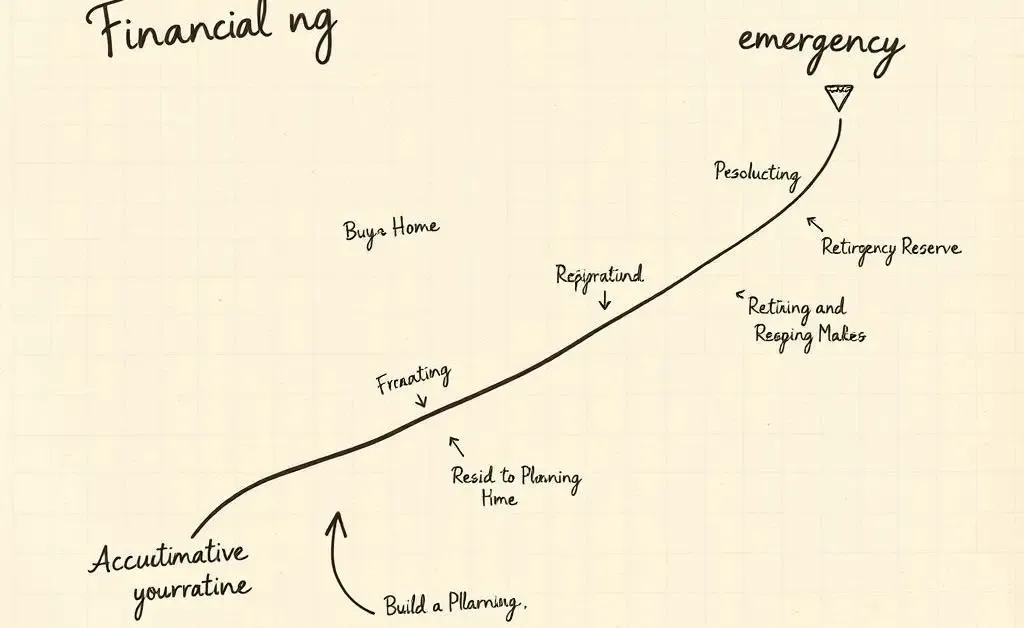 Financial ng
emergency
Pesolucting
Buya Home
Retirgency Reserve
Retiring and
Resping Makes
Frematting
Resid to Planning
Hme
Accuctimative
yourratine
Build a Pllarning.